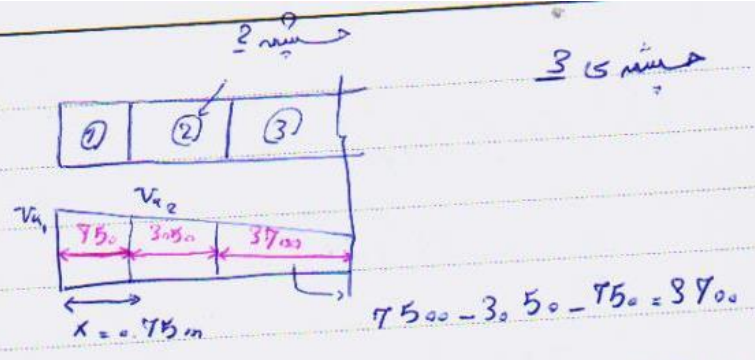 چشمه 2
چشمه ی 3
① ② ③
Vu₁ Vu₂
750 3050 3700
x = 0.75 m
7500 - 3050 - 750 = 3700